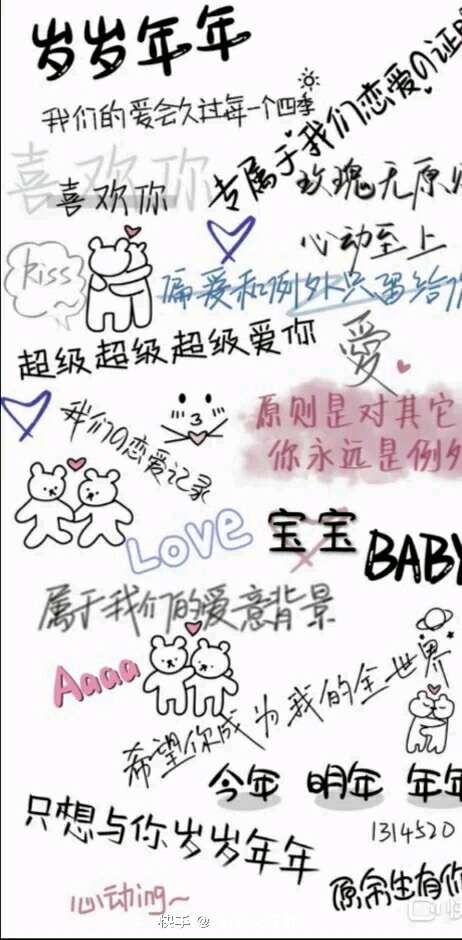 岁岁年年
我们的爱会久过每一个四季
专属于我们恋爱の证明
喜欢你
喜欢你
玫瑰无原
心动至上
kiss
偏爱和例外只留给你
超级超级超级爱你
愛
我们の恋爱记录
原则是对其它
你永远是例外
LOVE
宝宝
BABY
属于我们的爱意背景
Aaaa
希望你成为我的全世界
今年 明年 年年
只想与你岁岁年年
1314520
愿余生有你
心动ing~
快手 @